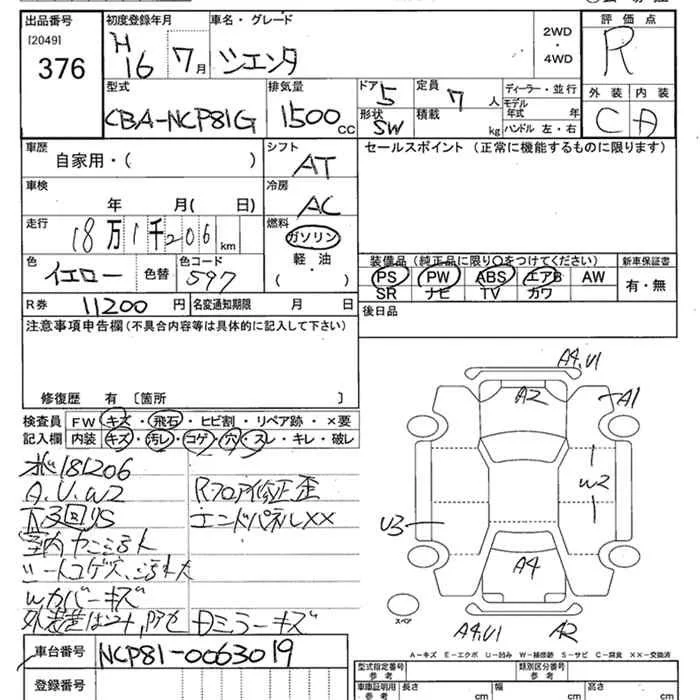 出品番号
[2049]
376
初度登録年月
H
16 7月
車名・グレード
シエンタ
2WD
・
4WD
評価点
R
外装 内装
C D
型式
CBA-NCP81G
排気量
1500cc
ドア 5
形状 SW
定員 7人
積載 kg
ディーラー・並行
モデル年式 年
ハンドル 左・右
車歴
自家用・( )
シフト
AT
車検
年 月( 日)
冷房
AC
走行
18万1千206km
燃料
ガソリン
軽・油
・
( )
色
イエロー 色替
色コード
597
R券 11200円
名変通知期限 月 日
セールスポイント (正常に機能するものに限ります)
装備品 (純正品に限り○をつけてください)
PS PW ABS エアB AW
SR ナビ TV カワ
新車保証書
有・無
後日品
注意事項申告欄(不具合内容等は具体的に記入して下さい)
修復歴 有 〔箇所 〕
検査員記入欄
FW キズ・飛石・ヒビ割・リペア跡・×要
内装 キズ・汚レ・コゲ・穴・スレ・キレ・破レ
181206
A.U.W2
室内ヤニ汚れ
シートコゲ穴、汚れ大
Wカバーキズ
Dミラーキズ
Rフロア修正歪
エンドパネルXX
A4.U1
A2
A1
W2
U3
A4
スペア
A4.U1
A2
A-キズ E-エクボ U-凹み W-補修跡 S-サビ C-腐食 XX-交換済
車台番号 NCP81-0063019
登録番号
型式指定番号
参考
類別区分番号
参考
車庫証明用
参考
長さ cm
幅 cm
高さ cm